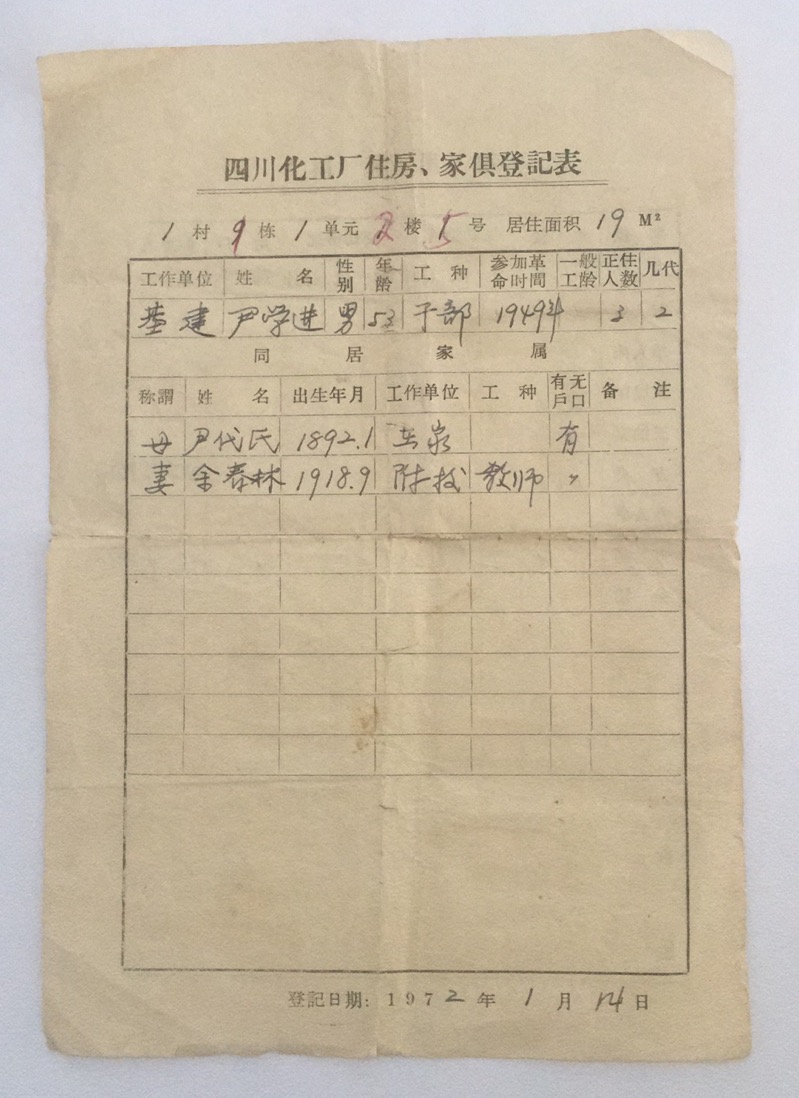 四川化工厂住房、家俱登記表
1 村 9 栋 1 单元 2 楼 5 号 居住面积 19 M²
工作单位 姓 名 性别 年龄 工 种 参加革命时間 一般工龄 正住人数 几代
基建 尹学进 男 53 干部 1949年 3 2
同 居 家 属
称謂 姓 名 出生年月 工作单位 工 种 有无戶口 备 注
母 尹代氏 1892.1 在家 有
妻 余春林 1918.9 附校 教师 〃
登記日期：1972 年 1 月 14 日